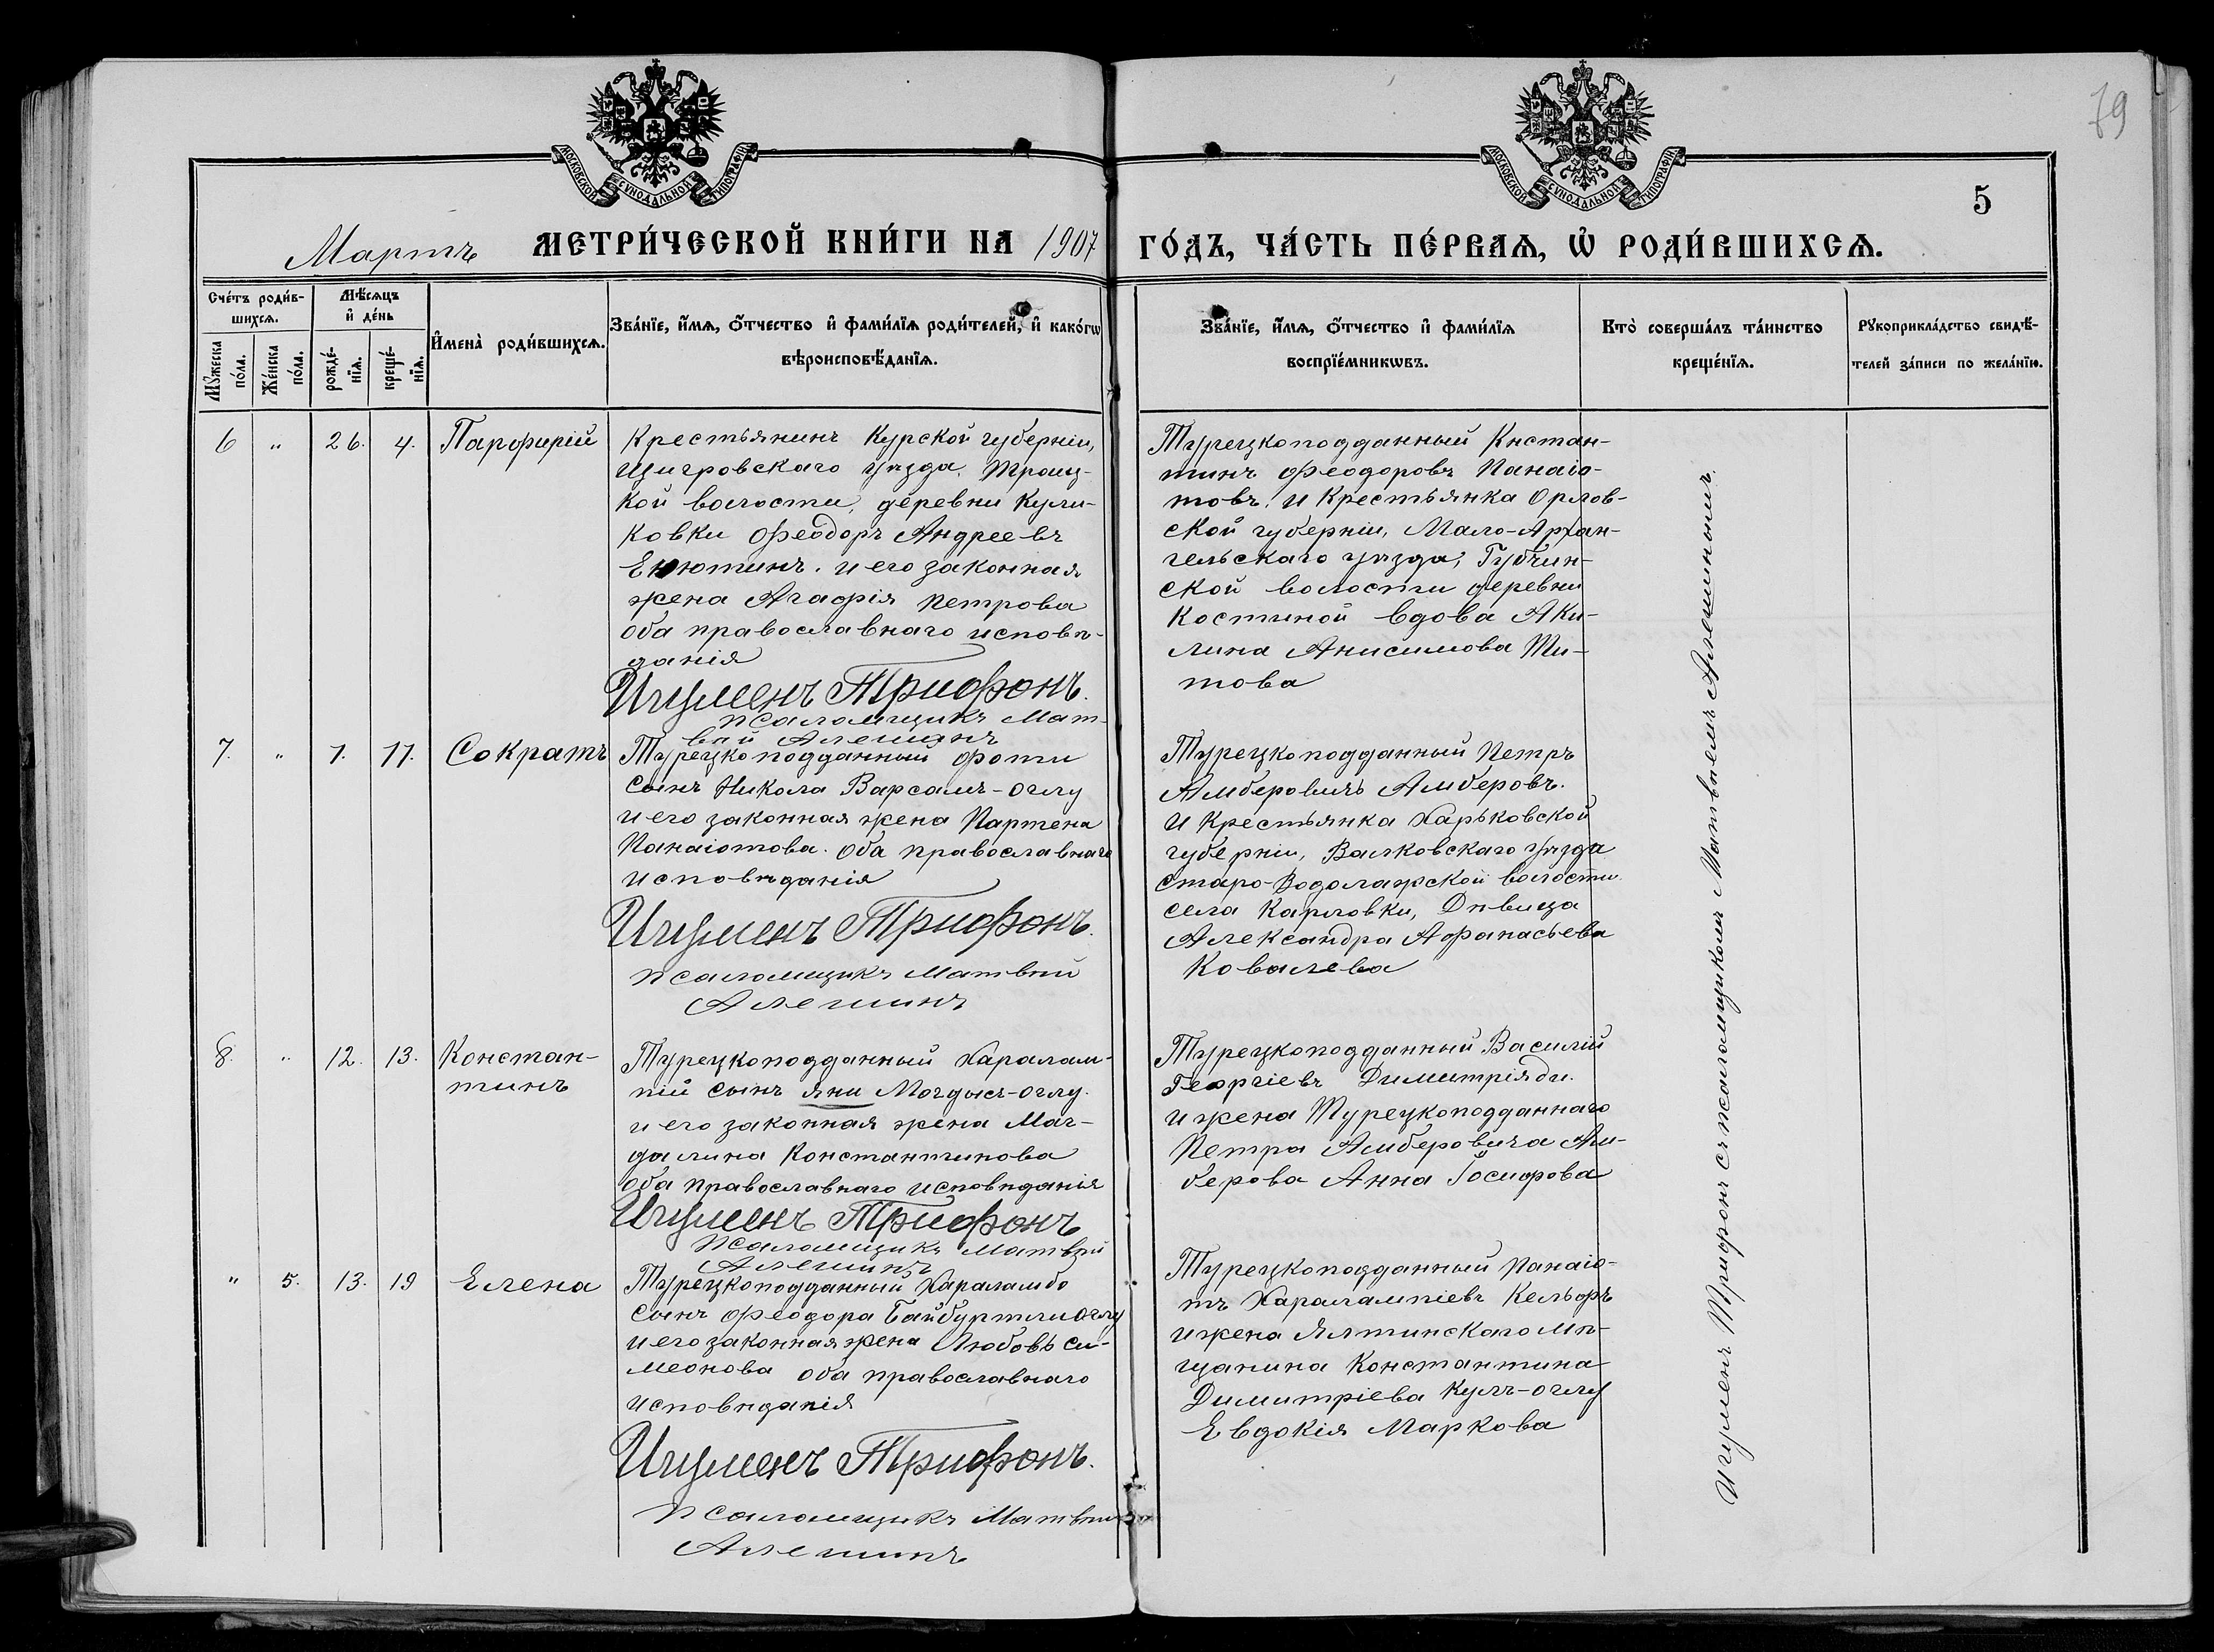 МОСКОВСКОЙ СѴНОДАЛЬНОЙ ТИПОГРАФІИ
МОСКОВСКОЙ СѴНОДАЛЬНОЙ ТИПОГРАФІИ
79
5
Мартъ МЕТРИ́ЧЕСКОЙ КНИ́ГИ НА 1907 ГО́ДЪ, ЧА́СТЬ ПЕ́РВАѦ, Ѡ҆ РОДИ́ВШИХСѦ.
Сче́тъ роди́в-
шихсѧ.
Мѣ́сѧцъ
и҆ де́нь
И҆мена̀ роди́вшихсѧ.
Зва́нїе, и҆́мѧ, ѻ҆́тчество и҆ фами́лїѧ роди́телей, и҆ како́гѡ
вѣроисповѣ́данїѧ.
Зва́нїе, и҆́мѧ, ѻ҆́тчество и҆ фами́лїѧ
воспрїе́мникѡвъ.
Кто̀ соверша́лъ та́инство
креще́нїѧ.
Рꙋкоприкла́дство свидѣ́-
телей за́писи по жела́нїю.
Мꙋ́жеска
по́ла.
Же́нска
по́ла.
рожде́-
нїѧ.
креще́-
нїѧ.
6 „ 26. 4. Парфирій
Крестьянинъ Курской губерніи,
Щигровскаго уѣзда, Троиц-
кой волости, деревни Кули-
ковки Ѳеодоръ Андреевъ
Енютинъ. и его законная
жена Агафія Петрова
оба православнаго исповѣ-
данія
Игуменъ Трифонъ.
Псаломщикъ Мат-
вѣй Алешинъ
Турецкоподданный Кнстан-
тинъ Ѳеодоровъ Панаіо-
товъ. и Крестьянка Орлов-
ской губерніи, Мало-Архан-
гельскаго уѣзда, Губкин-
ской волости деревни
Костиной вдова Аки-
лина Анисимова Ти-
това
7. „ 1. 11. Сократъ
Турецкоподданный Фоти
сынъ Никола Варсамъ-оглу
и его законная жена Партена
Панаіотова. оба православнаго
исповѣданія
Игуменъ Трифонъ.
Псаломщикъ Матвѣй
Алешинъ
Турецкоподданный Петръ
Амберовичъ Амберовъ.
и Крестьянка Харьковской
губерніи, Валковскаго уѣзда
Старо-Водолажской волости
села Карловки, Дѣвица
Александра Афанасьева
Ковалева
8. „ 12. 13. Констан-
тинъ
Турецкоподданный Харалам-
пій сынъ Яни Могдысъ-оглу.
и его законная жена Маг-
далина Константинова
оба православнаго исповѣданія
Игуменъ Трифонъ
Псаломщикъ Матвѣй
Алешинъ
Турецкоподданный Василій
Георгіевъ Димитріяди.
и жена Турецкоподданнаго
Петра Амберовича Ам-
берова Анна Іосифова
„ 5. 13. 19 Елена
Турецкоподданный Хараламбо
сынъ Ѳеодора Байбуртлиоглу
и его законная жена Любовь Си-
меонова оба православнаго
исповѣданія
Игуменъ Трифонъ.
Псаломщикъ Матвѣй
Алешинъ
Турецкоподданный Панаіо-
тъ Харалампіевъ Кельоръ
и жена Ялтинскаго мѣ-
щанина Константина
Димитріева Кулъ-оглу
Евдокія Маркова
Игуменъ Трифонъ съ псаломщикомъ Матвѣемъ Алешинымъ.